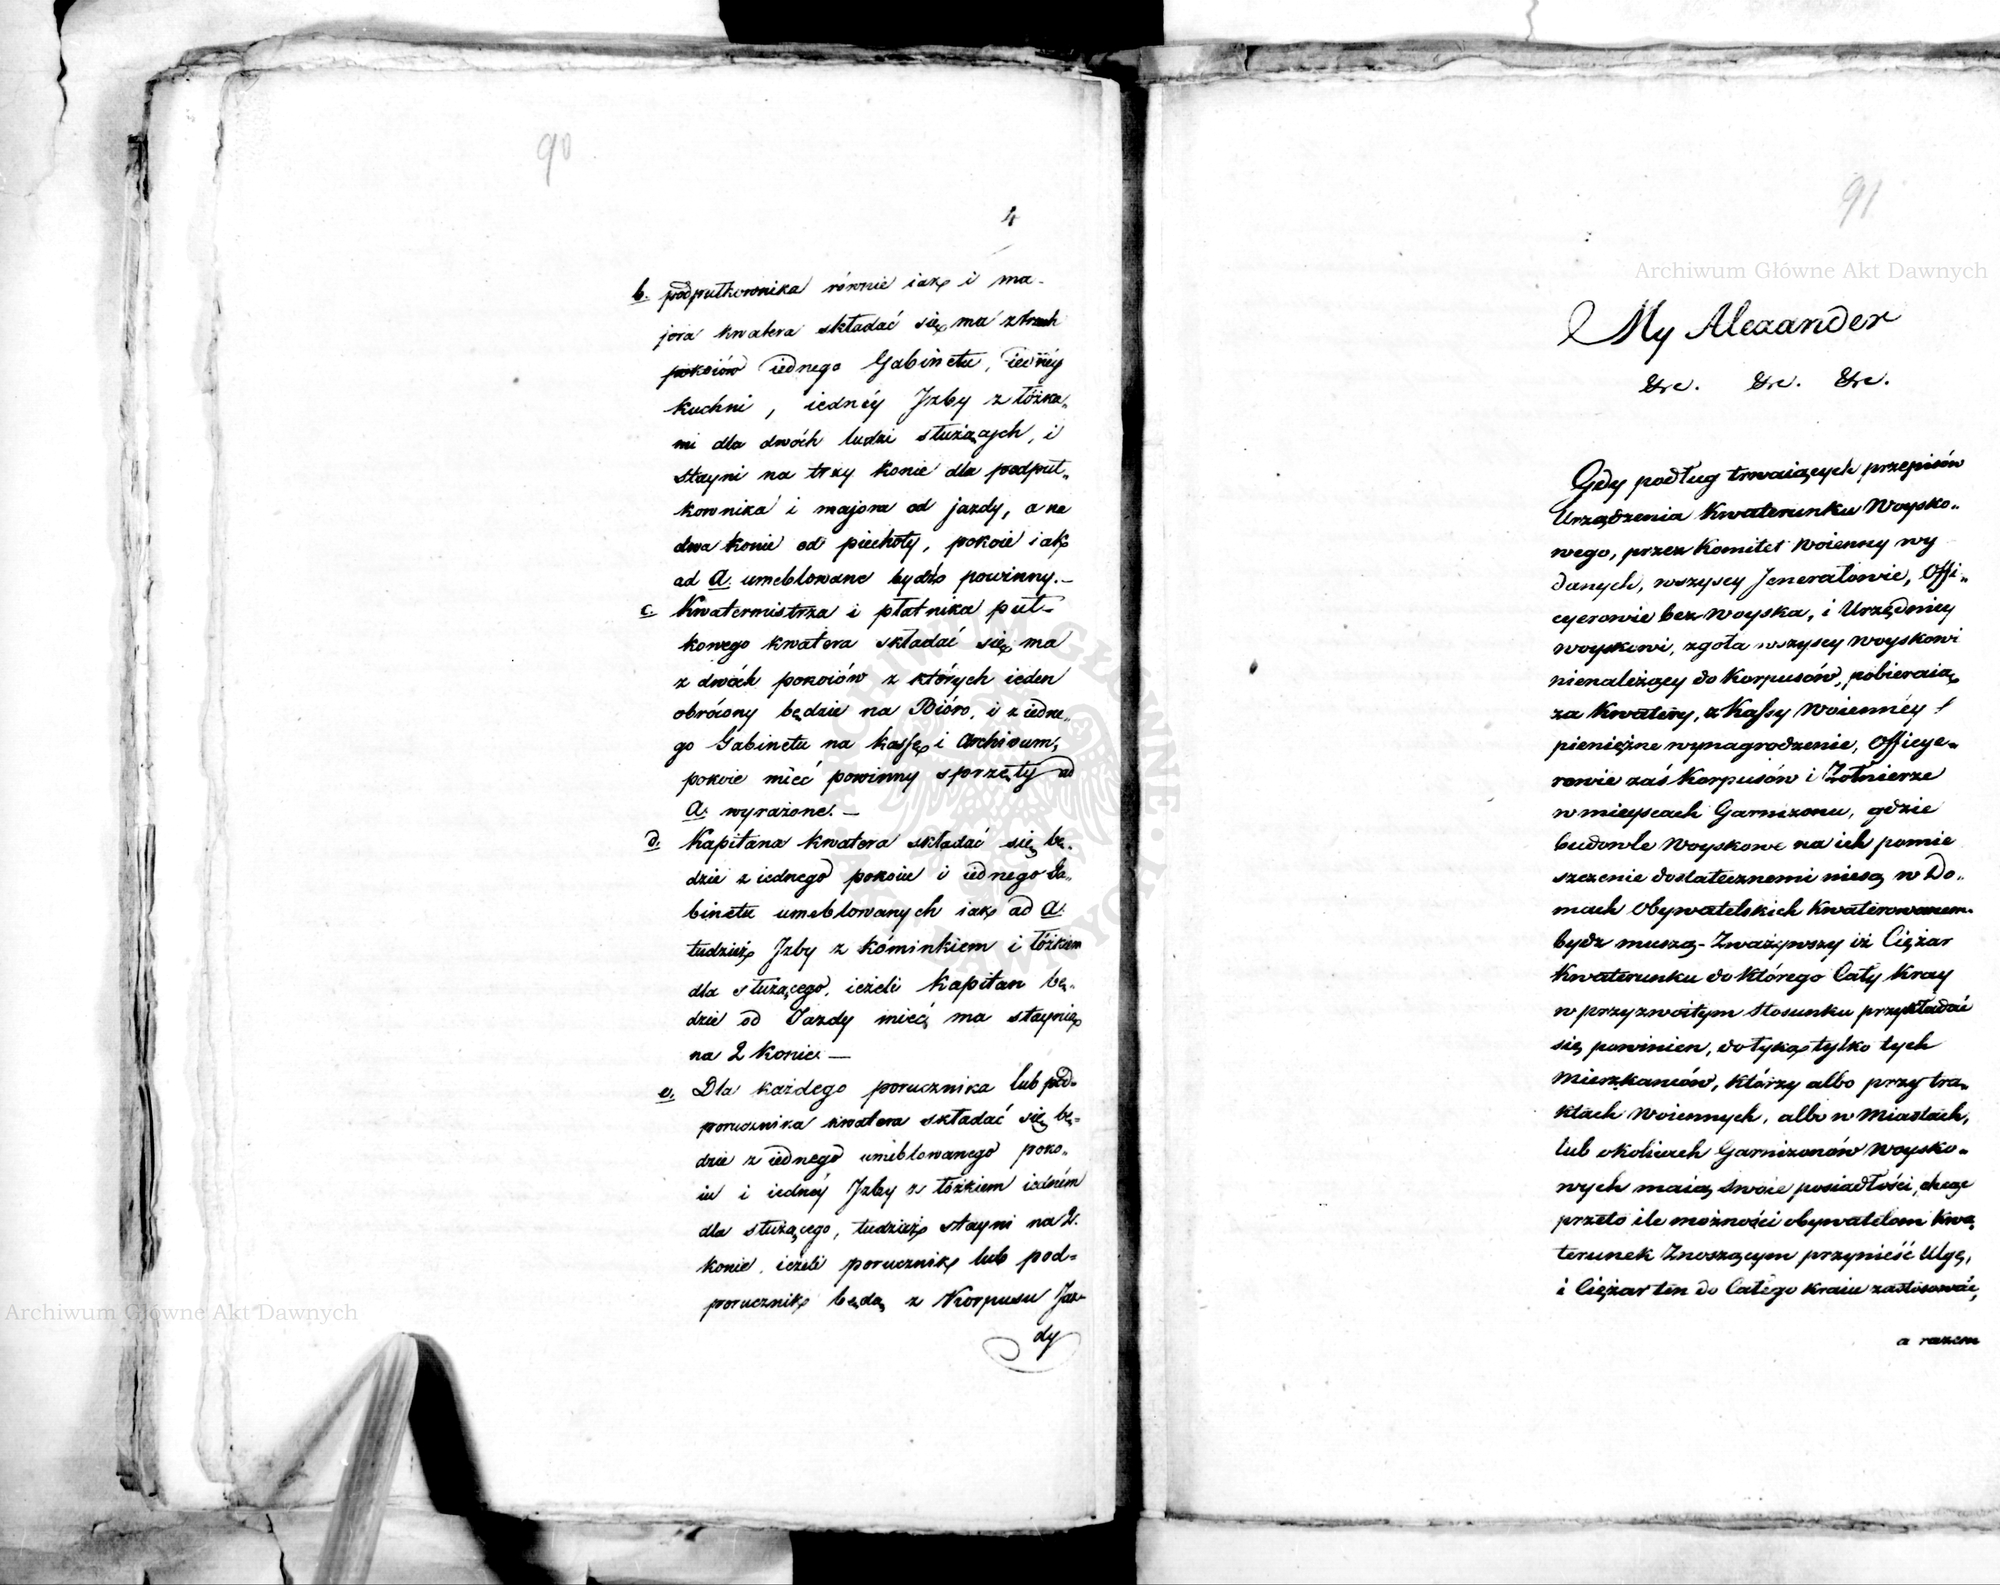 90
4
b. podpułkownika równie iak i ma-
jora kwatera składać się ma z trzech
pokoiów iednego Gabinetu, iednéy
kuchni, iednéy Izby z łóżka„
mi dla dwóch ludzi służących, i
stayni na trzy konie dla podpuł„
kownika i majora od jazdy, a na
dwa konie od piechoty, pokoie iak
ad A. umeblowane bydź powinny.—
c. Kwatermistrza i płatnika puł-
kowego kwatera składać się ma
z dwóch pokoiów z których ieden
obrócony będzie na Bióro, i z iedne„
go Gabinetu na kassę i Archivum,
pokoie mieć powinny sprzęty ad
A. wyrażone.—
d. Kapitana kwatera składać się bę„
dzie z iednego pokoiu i iednego Ga„
binetu umeblowanych iak ad A.
tudzież Izby z kóminkiem i łóżkiem
dla służącego, ieżeli kapitan bę„
dzie od Jazdy mieć ma staynię
na 2 konie.—
e. Dla każdego porucznika lub pod-
porucznika kwatera składać się bę-
dzie z iednego umeblowanego poko„
iu i iednéy Izby z łóżkiem iedném
dla służącego, tudzież stayni na 2.
konie, ieżeli porucznik lub pod-
porucznik będą z Korpusu Jaz-
dy
91
My Alexander
&c. &c. &c.
Gdy podług trwaiących przepisów
Urządzenia Kwaterunku Woysko„
wego, przez Komitet Woienny wy
danych, wszyscy Jenerałowie, Offi„
cyerowie bez Woyska, i Urzędnicy
woyskowi, zgoła wszyscy woyskowi
nienależący do Korpusów, pobieraią
za Kwatery, z Kassy Woiennéy
pieniężne wynagrodzenie, Officye„
rowie zaś Korpusów i Żołnierze
w mieyscach Garnizonu, gdzie
budowle Woyskowe na ich pomie
szczenie dostatecznemi niesą w Do„
mach Obywatelskich Kwaterowanem„
bydź muszą- Zważywszy iż Ciężar
Kwaterunku do którego Cały Kray
w przyzwoitym Stosunku przykładać
się powinien, dotyka tylko tych
Mieszkańców, którzy albo przy tra„
ktach Woiennych, albo w Miastach,
lub okolicach Garnizonów Woysko„
wych maią Swoie posiadłości, chcąc
przeto ile możności obywatelom Kwa
terunek Znoszącym przynieść Ulgę,
i Ciężar ten do Całego Kraiu zastosować,
a razem
Archiwum Główne Akt Dawnych
Archiwum Główne Akt Dawnych